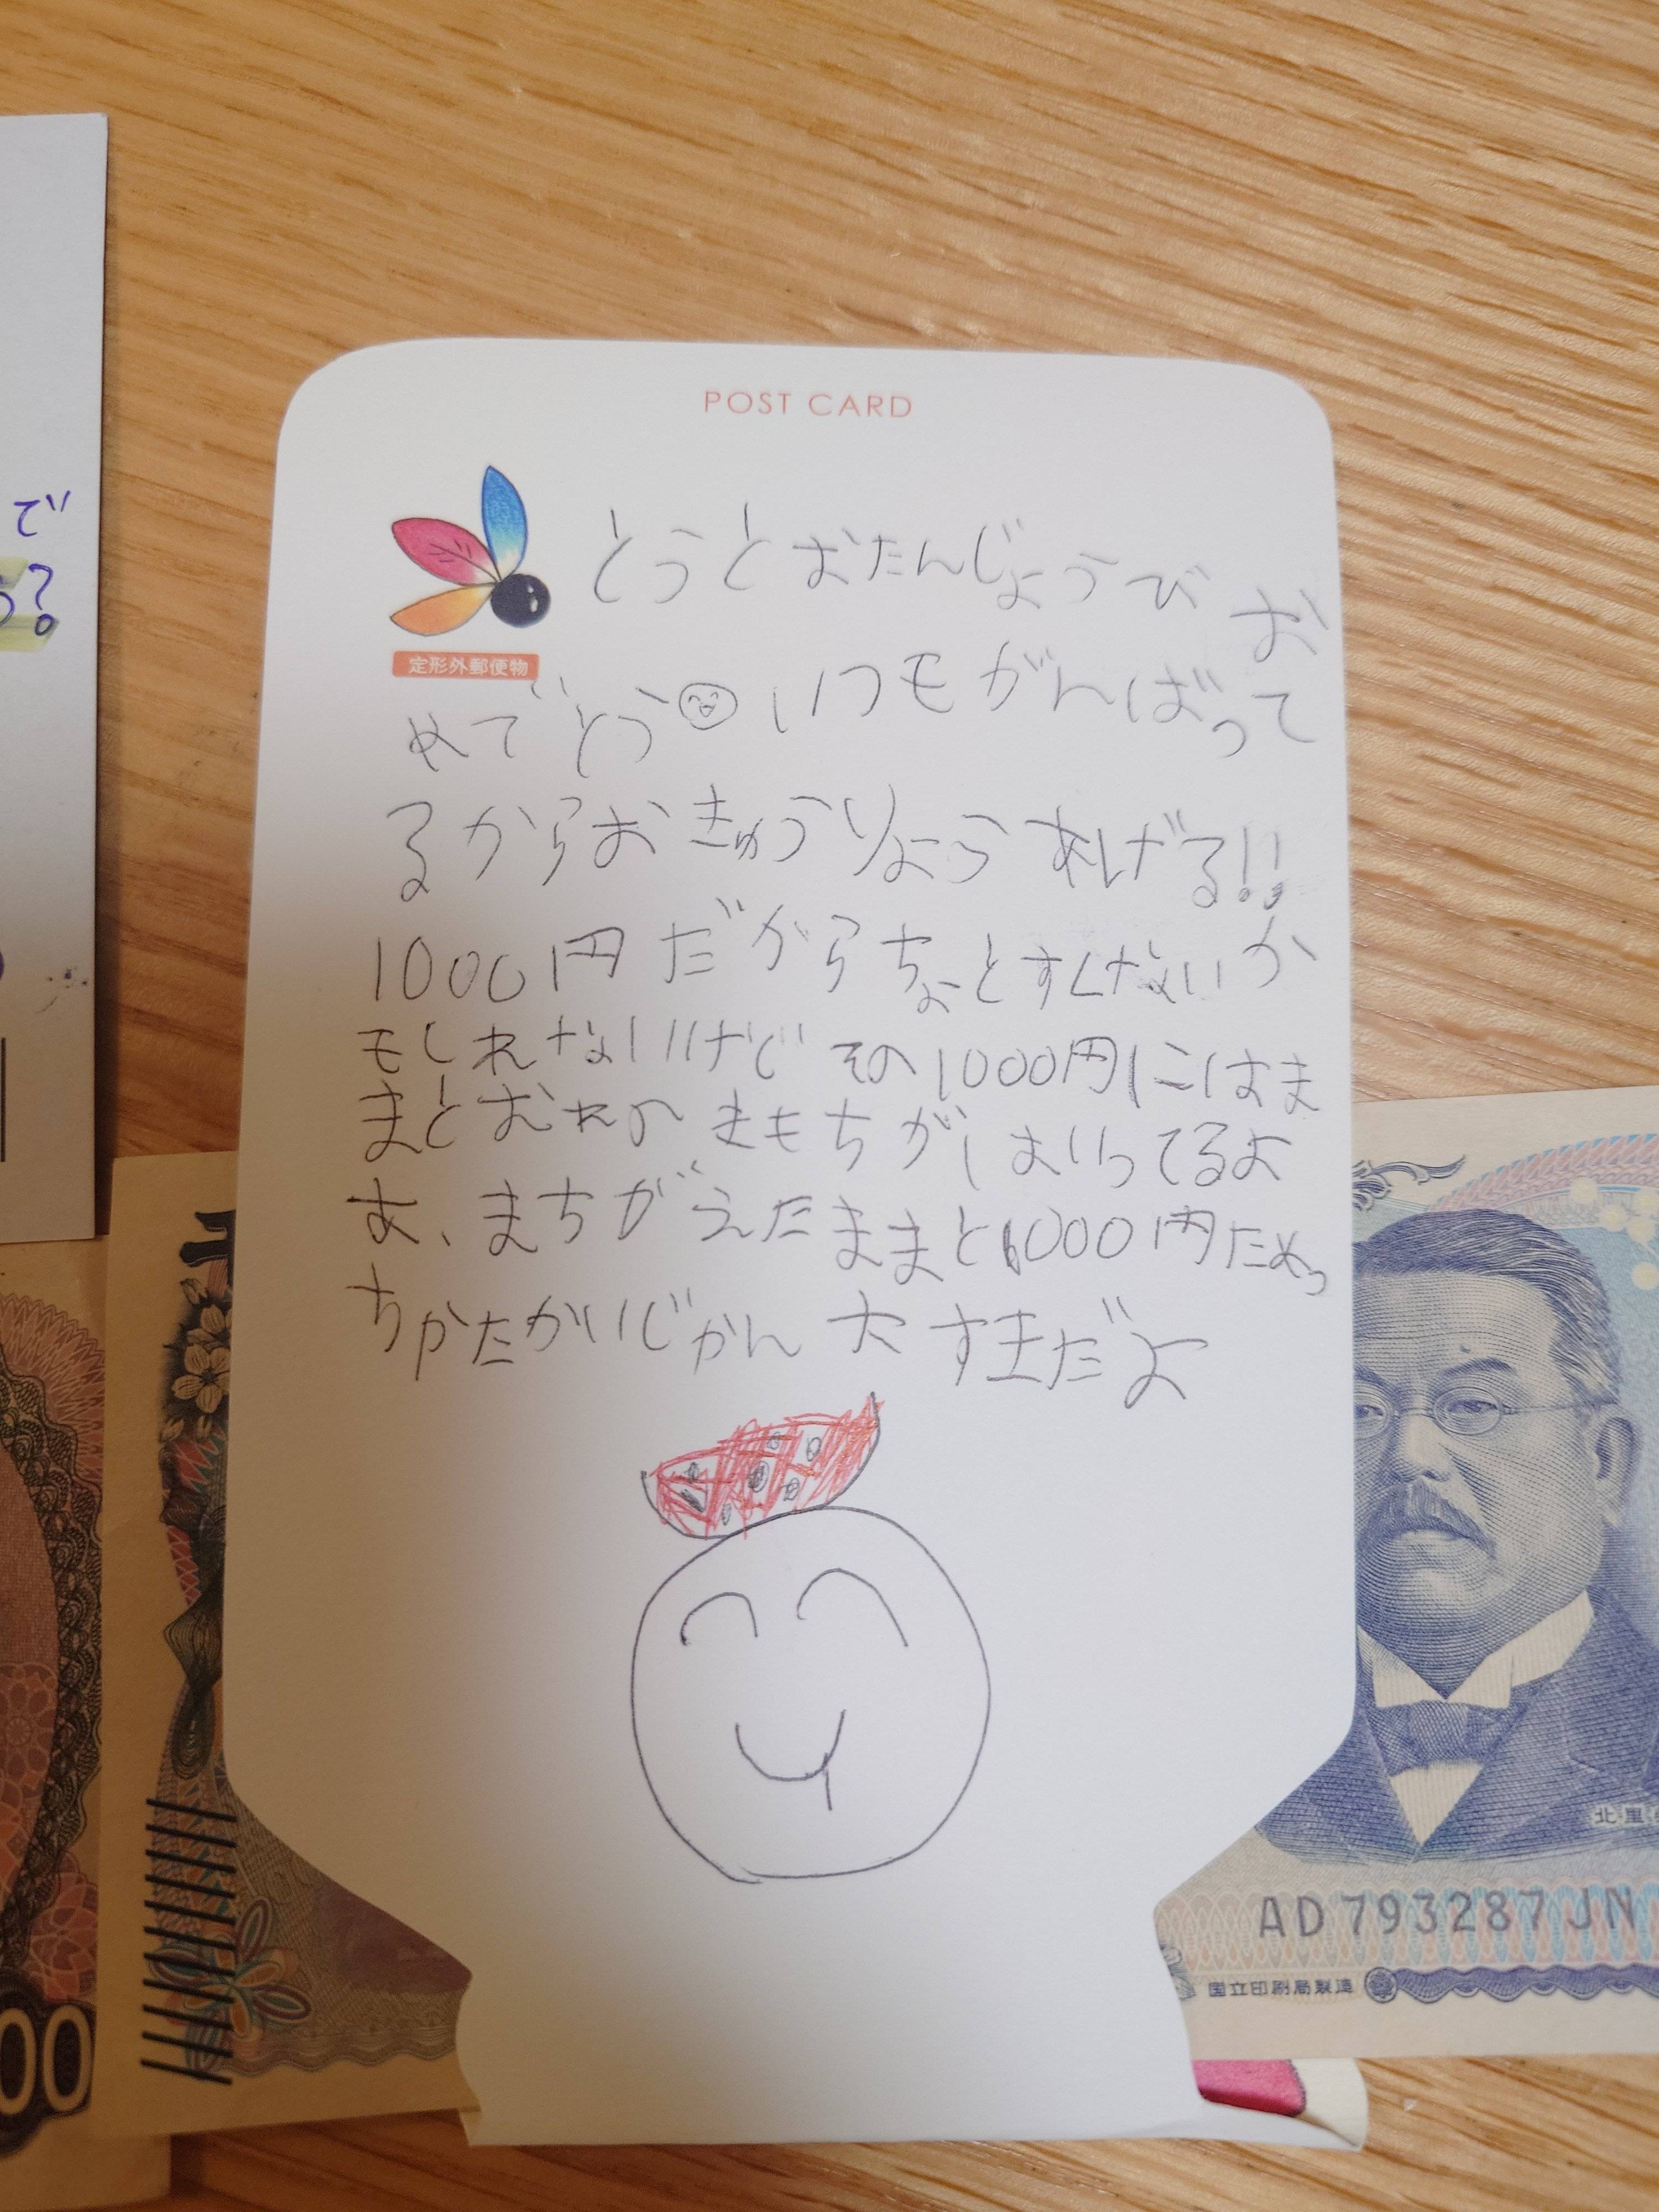 POST CARD
定形外郵便物
とうとおたんじょうびお
めでとう いつもがんばって
るからおきゅうりょうあげる!!
1000円だからちょとすくないか
もしれないけどその1000円にはま
まとおれのきもちがはいってるよ
あ、まちがえたままと1000円ためっ
ちかたがいじかん大すきだよ
で
?
北里
AD793287JN
国立印刷局製造
00